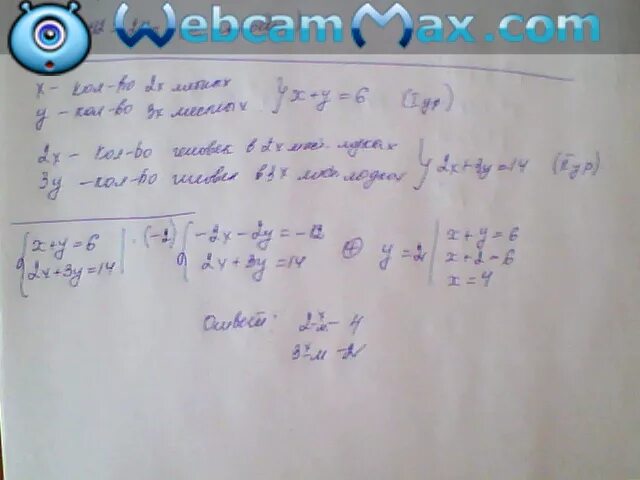 WebcamMax.com
x - кол-во 2х местных
y - кол-во 3х местных } x+y=6 (I ур)
2x - кол-во человек в 2х мест. лодках
3y - кол-во человек в 3х мест лодках } 2x+3y=14 (II ур)
{ x+y=6 | ·(-2) { -2x-2y=-12 ⊕ y=2 | x+y=6
2x+3y=14 2x+3y=14 x+2=6
x=4
Ответ: 2-х м - 4
3-х м - 2